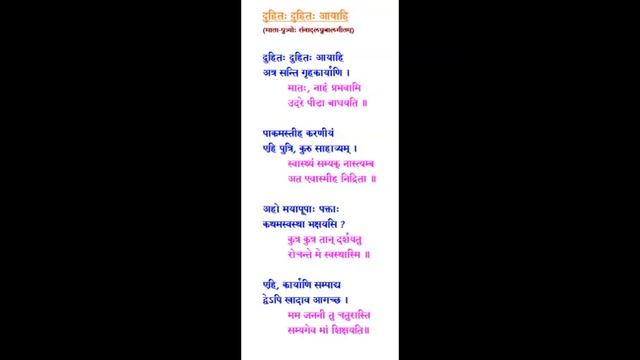 दुहितः दुहितः आयाहि
(माता-पुत्र्योः संवादात्मकबालगीतम्)
दुहितः दुहितः आयाहि
अत्र सन्ति गृहकार्याणि ।
मातः, नाहं प्रभवामि
उदरे पीडा बाधयति ॥
पाकमस्तीह करणीयं
एहि पुत्रि, कुरु साहाय्यम् ।
स्वास्थ्यं सम्यक् नास्त्यम्ब
अत एवास्मीह निद्रिता ॥
अहो मयापूपाः पक्ताः
कथमस्वस्था भक्षयसि ?
कुत्र कुत्र तान् दर्शयतु
रोचन्ते मे स्वस्थास्मि ॥
एहि, कार्याणि सम्पाद्य
द्वेऽपि खादाव आगच्छ ।
मम जननी तु चतुरास्ति
सम्यगेव मां शिक्षयति॥